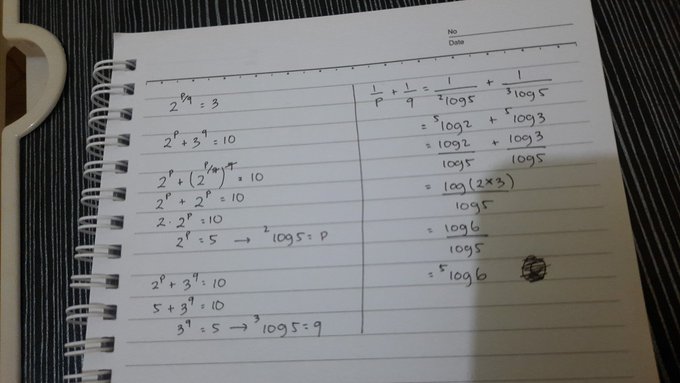 No
Date
2^(p/q) = 3
2^p + 3^q = 10
2^p + (2^(p/q))^q = 10
2^p + 2^p = 10
2 . 2^p = 10
2^p = 5 → ²log5 = p
2^p + 3^q = 10
5 + 3^q = 10
3^q = 5 → ³log5 = q
1/p + 1/q = 1/²log5 + 1/³log5
= ⁵log2 + ⁵log3
= log2/log5 + log3/log5
= log(2×3)/log5
= log6/log5
= ⁵log6